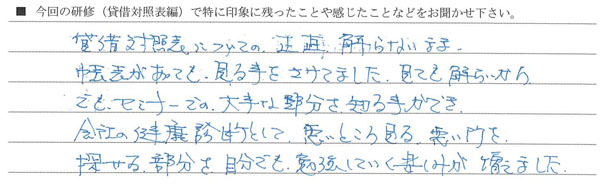 ■ 今回の研修（貸借対照表編）で特に印象に残ったことや感じたことなどをお聞かせ下さい。
貸借対照表についての、正直、解らないまま、
決表があっても、見る事をさけてました。見ても解らいから
でも、セミナーでの、大事な部分を知る事ができ、
会社の健康診断として、悪いところ見る、悪い所を、
探せる、部分を、自分でも、勉強していく楽しみが増えました。